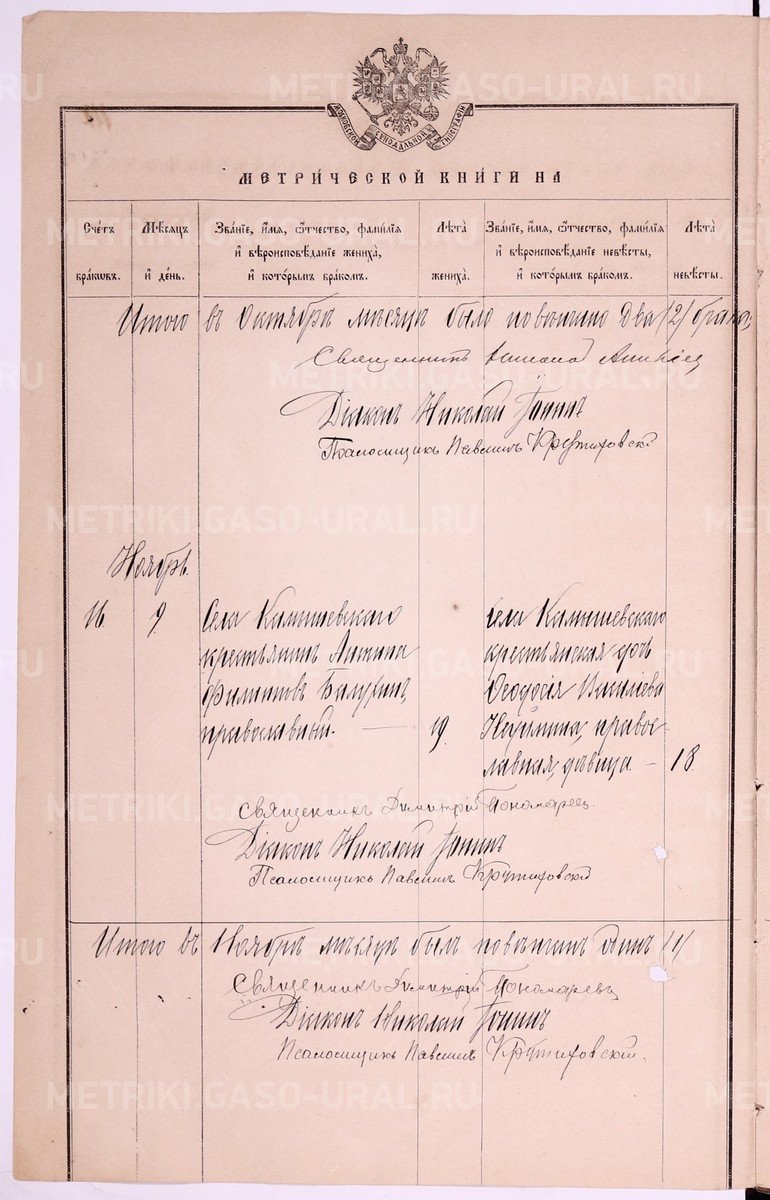 METRIKI.GASO-URAL.RU
МОСКОВСКОЙ СѴНОДАЛЬНОЙ ТИПОГРАФІИ
МЕТРИ́ЧЕСКОЙ КНИ́ГИ НА
Сче́тъ бра́кѡвъ.
Мѣ́сяцъ и҆ де́нь.
Зва́ніе, и҆́мя, ѻ҆́тчество, фами́лія и҆ вѣроисповѣ́даніе жениха̀, и҆ кото́рымъ бра́комъ.
Лѣ́та жениха̀.
Зва́ніе, и҆́мя, ѻ҆́тчество, фами́лія и҆ вѣроисповѣ́даніе невѣ́сты, и҆ кото́рымъ бра́комъ.
Лѣ́та невѣ́сты.
Итого въ Октябрѣ мѣсяцѣ было повѣнчано два /2/ брака
Священникъ
Діаконъ Николай Іонинъ
Псаломщикъ Павелинъ Крутиховскій
Ноябрь.
16
9.
Села Камышевскаго
крестьянинъ Антипа
Филиповъ Балухинъ,
православный. —
19.
Села Камышевскаго
крестьянская дочь
Ѳеодосія Василіева
православная, дѣвица —
18.
Священникъ Димитрій Пономаревъ.
Діаконъ Николай Іонинъ
Псаломщикъ Павелинъ Крутиховскій
Итого въ Ноябрѣ мѣсяцѣ былъ повѣнчанъ одинъ /1/
Священникъ Димитрій Пономаревъ
Діаконъ Николай Іонинъ
Псаломщикъ Павелинъ Крутиховскій.